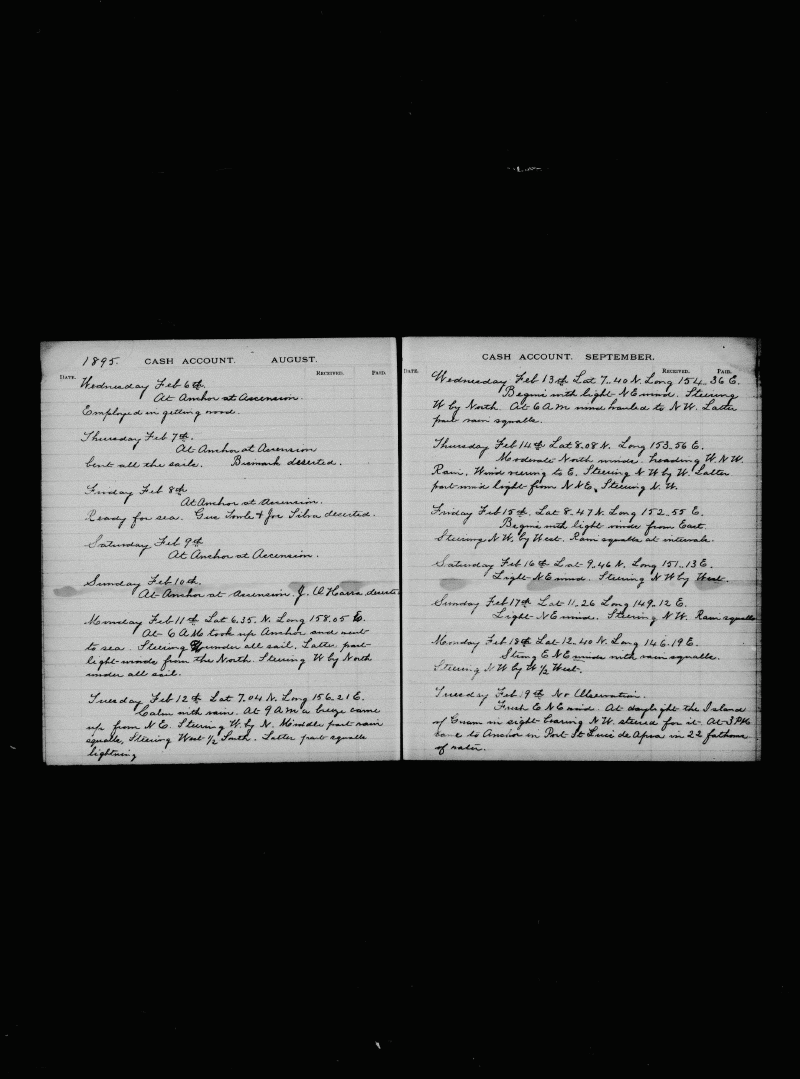 1895. CASH ACCOUNT. AUGUST.
DATE. RECEIVED. PAID.
Wednesday Feb 6th.
At Anchor at Ascension.
Employed in getting wood.
Thursday Feb 7th.
At Anchor at Ascension
bent all the sails. Bismark deserted.
Friday Feb 8th
At Anchor at Ascension.
Ready for sea. Gus Towle & Joe Silva deserted.
Saturday Feb 9th
At Anchor at Ascension.
Sunday Feb 10th.
At Anchor at Ascension. J. O'Harra deserted
Munday Feb 11th Lat 6.35. N. Long 158.05 E.
At 6 A M took up Anchor and went
to sea. Steering W under all sail. Latter part
light winds from the North. Steering W by North
under all sail.
Tuesday Feb 12th Lat 7.04 N. Long 156.21 E.
Calm with rain. At 9 A M a breeze came
up from N E. Steering W. by N. Middle part rain
squalls, Steering West 1/2 South. Latter part squalls
lightning
CASH ACCOUNT. SEPTEMBER.
DATE. RECEIVED. PAID.
Wednesday Feb 13th Lat 7-40 N. Long 154-36 E.
Begins with light N E wind. Steering
W by North. At 6 A M wind hauled to N W. Latter
part rain squalls.
Thursday Feb 14th Lat 8.08 N. Long 153.56 E.
Moderate North winds. heading W. N W.
Rain. Wind veering to E. Steering N W by W. Latter
part wind light from N N E, Steering N. W.
Friday Feb 15th. Lat 8-47 N. Long 152-55 E.
Begins with light winds from East.
Steering N. W. by West. Rain squalls at intervals.
Saturday Feb 16th Lat 9-46 N. Long 151-13 E.
Light N E wind. Steering N W by West.
Sunday Feb 17th Lat 11-26 Long 149-12 E.
Light N E winds. Steering N W. Rain squalls
Monday Feb 18th Lat 12-40 N. Long 146.19 E.
Strong E N E winds with rain squalls.
Steering N W by W 1/2 West.
Tuesday Feb 19th No Observation.
Fresh E N E wind. At daylight the Island
of Guam in sight bearing N W. steered for it. At 3 PM
came to Anchor in Port St Luis de Apra in 22 fathoms
of water.